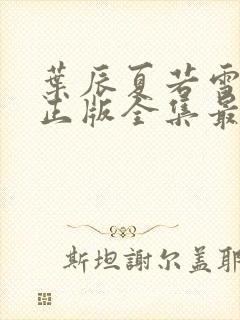 葉辰夏若雪
正版全集最
斯坦謝尔盖耶